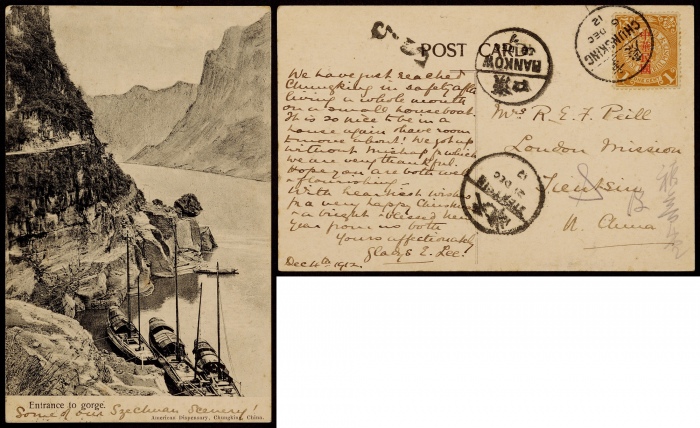 Entrance to gorge.
Some of our Szechuan Scenery!
American Dispensary, Chungking, China.
POST CARD
We have just reached
Chungking in safety after
living a whole month
on a small houseboat.
It is so nice to be in a
house again & have room
to move about! We got up
without mishap for which
we are very thankful.
Hope you are both well
& flourishing.
With heartiest wishes
for a very happy Christmas
& a bright & blessed New
Year from us both
Yours affectionately
Gladys E. Lee!
Dec 4th 1912.
HANKOW
漢口
CHUNGKING
6 DEC
12
TIENTSIN
DEC
12
Mrs R. E. F. Peill
London Mission
Tientsin
N. China
1